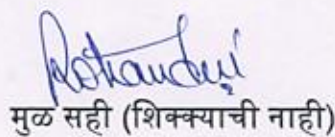 मुळ सही (शिक्क्याची नाही)